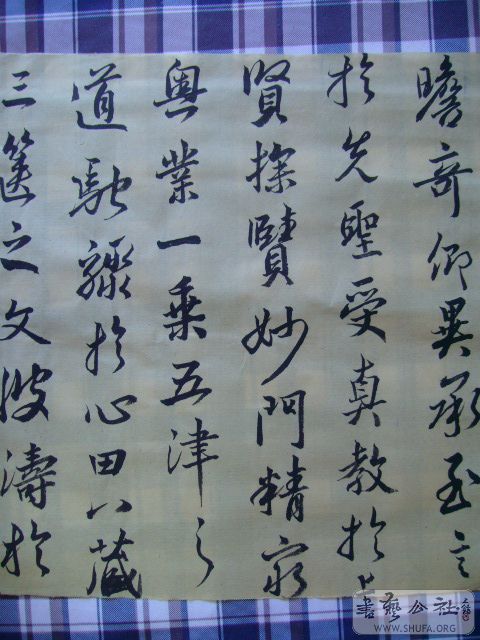 瞻奇仰異承至言
於先聖受真教於上
賢探賾妙門精窮
奧業一乗五津之
道馳驟於心田八藏
三篋之文波濤於
書藝公社
WWW.SHUFA.ORG